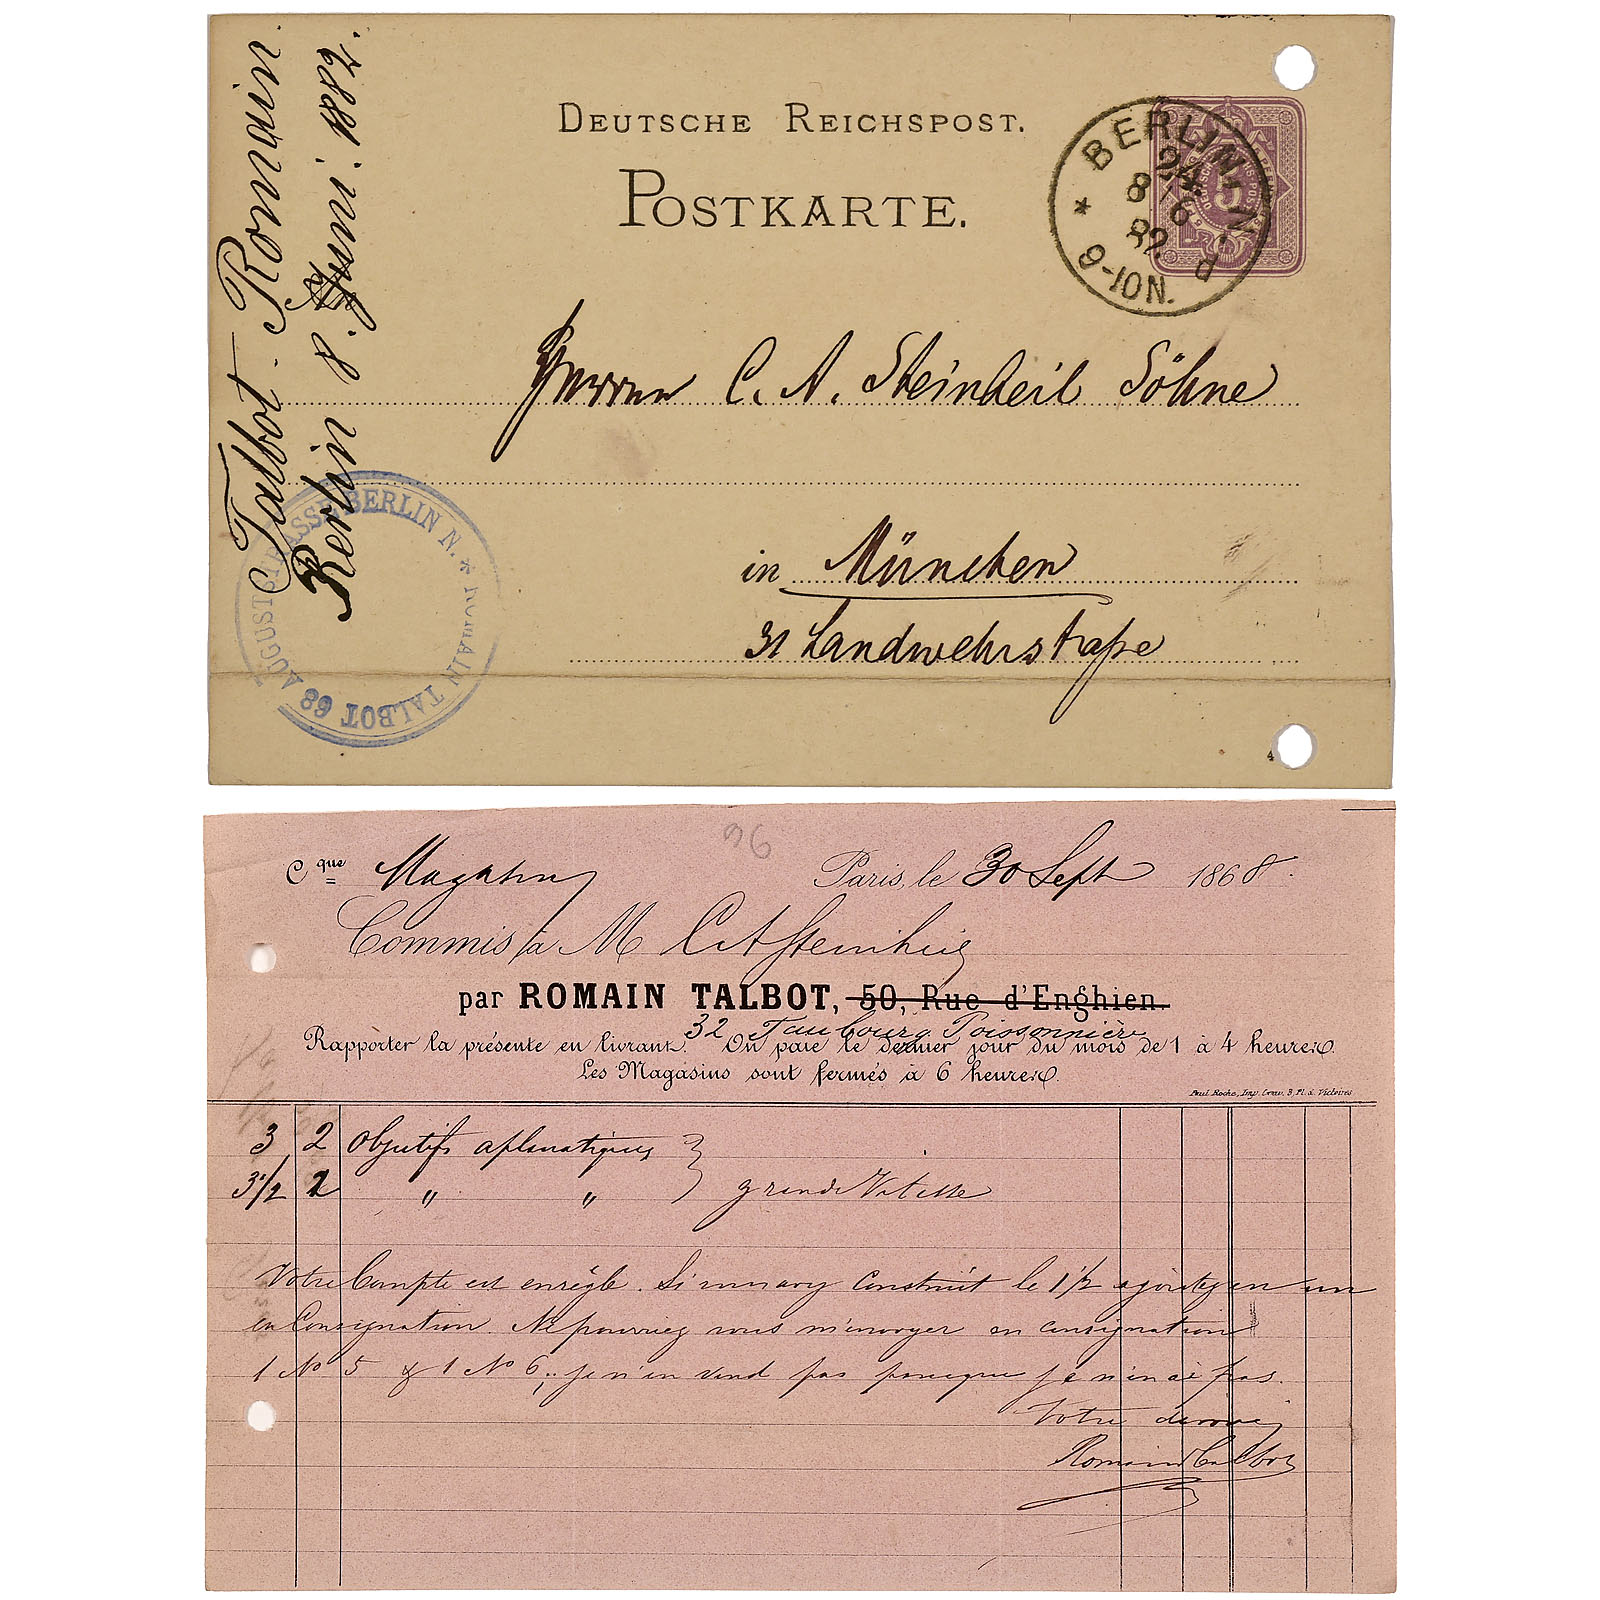 Talbot Romain
Berlin 8. Juni 1882.
DEUTSCHE REICHSPOST.
POSTKARTE.
5
BERLIN, N.
24
8 6
82
9-10N. d
Herren C. A. Steinheil Söhne
in München
31 Landwehrstraße
ROMAIN TALBOT 68 AUGUSTSTRASSE BERLIN N. *
4
96
Cque Paris, le 30 Sept 1868.
Commis à M CASteinheil
par ROMAIN TALBOT, 50, Rue d'Enghien.
32 Faubourg Poissonnière
Rapporter la présente en livrant. On paie le dernier jour du mois de 1 à 4 heures.
Les Magasins sont fermés à 6 heures.
Paul Roche, Imp. Grav. 3, Pl. d. Victoires
3 2 Objectifs aplanatiques
3 1/2 2 " " grande Vitesse
Votre Compte est enrégle. Si construit le 1 1/2 un
en Consignation. Ne pourriez vous m'envoyer en consignation
1 No 5 & 1 No 6; je n'en vend pas parceque je n'en ai pas.
Votre dévoué
Romain Talbot